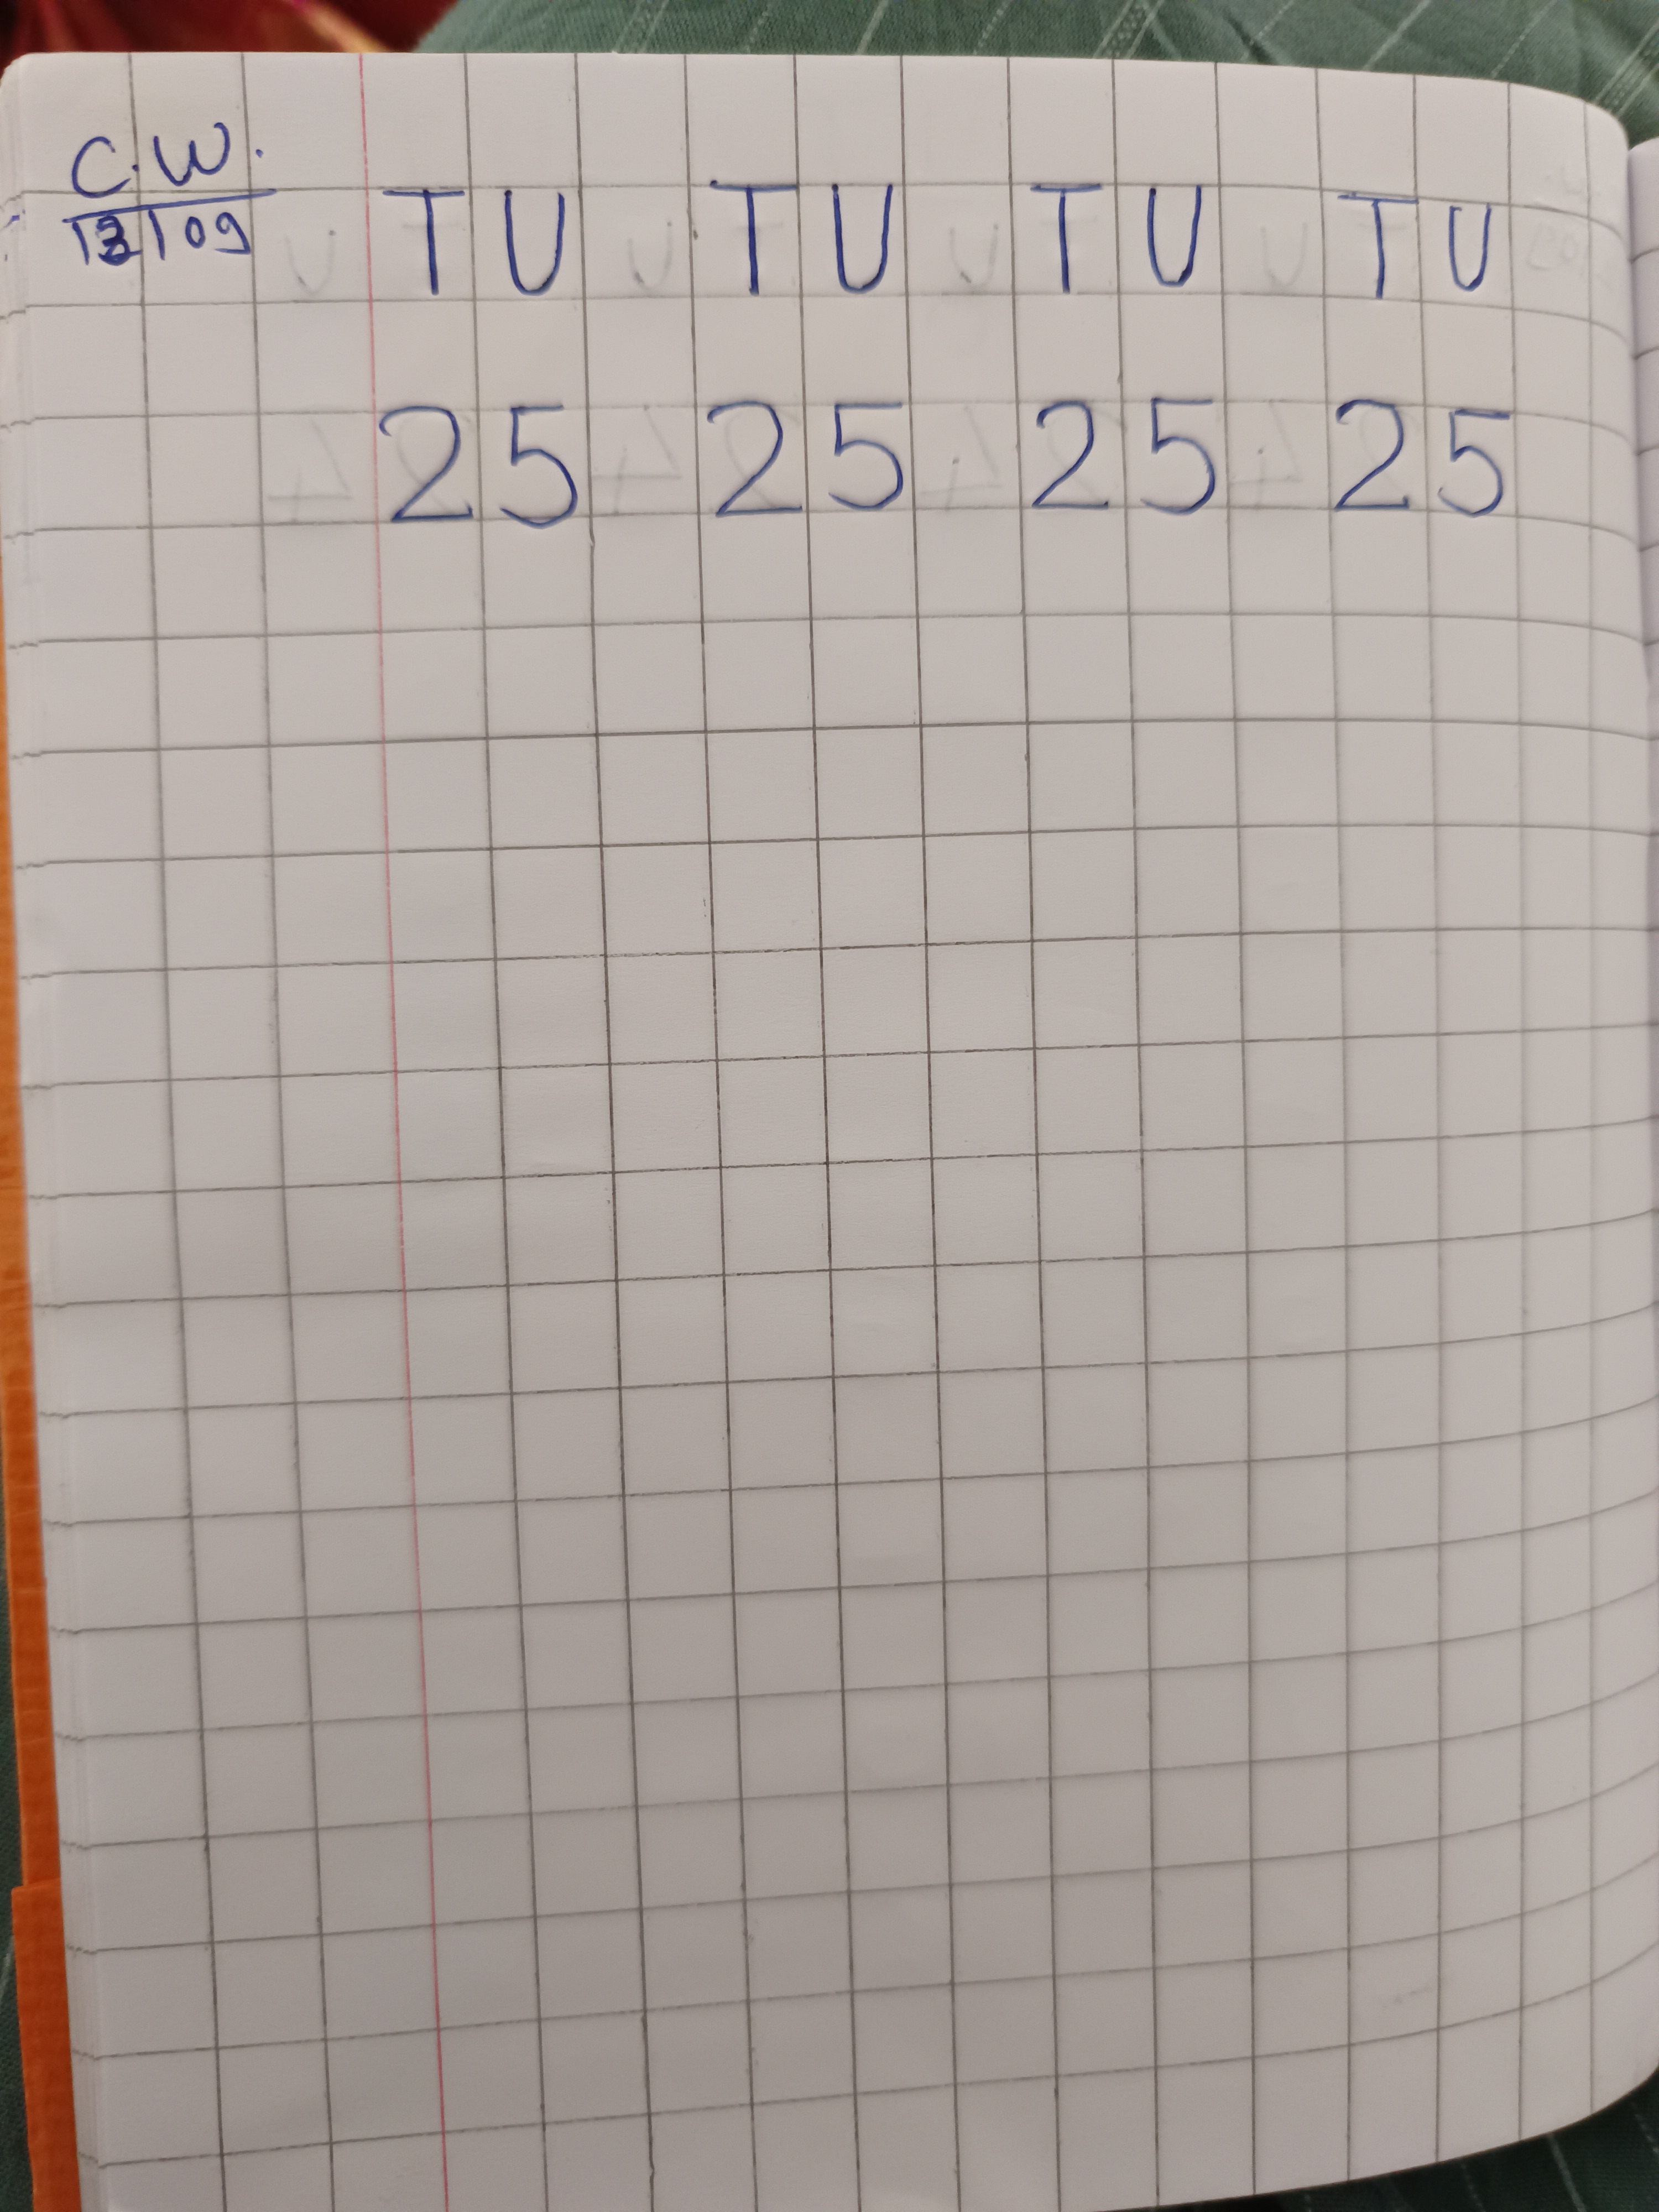 C.W.
13/09
T U T U T U T U
25 25 25 25